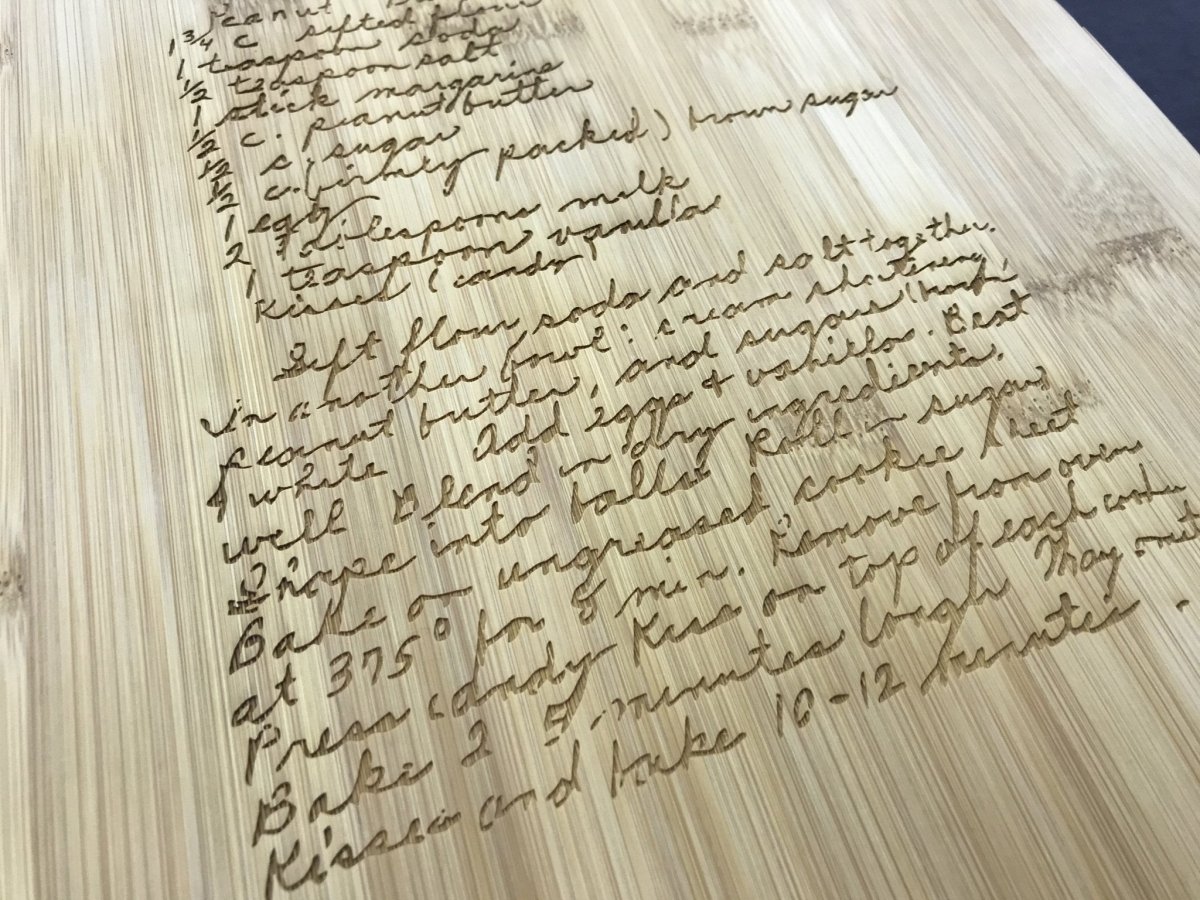 Peanut
1 3/4 c sifted flour
1 teaspoon soda
1/2 teaspoon salt
1 stick margarine
1/2 c. peanut butter
1/2 c. sugar
1/2 c. (firmly packed) brown sugar
1 egg
2 Tablespoons milk
1 teaspoon vanilla
Kisses (candy)
Sift flour, soda and salt together.
In another bowl: cream shortening,
peanut butter, and sugars (both
& white Add eggs & vanilla. Beat
well Blend in dry ingredients.
Shape into balls. Roll in sugar
Bake on ungreased cookie sheet
at 375° for 8 min. Remove from oven
Press candy Kiss on top of each cookie
Bake 2 5 minutes longer May omit
Kisses and bake 10-12 minutes.